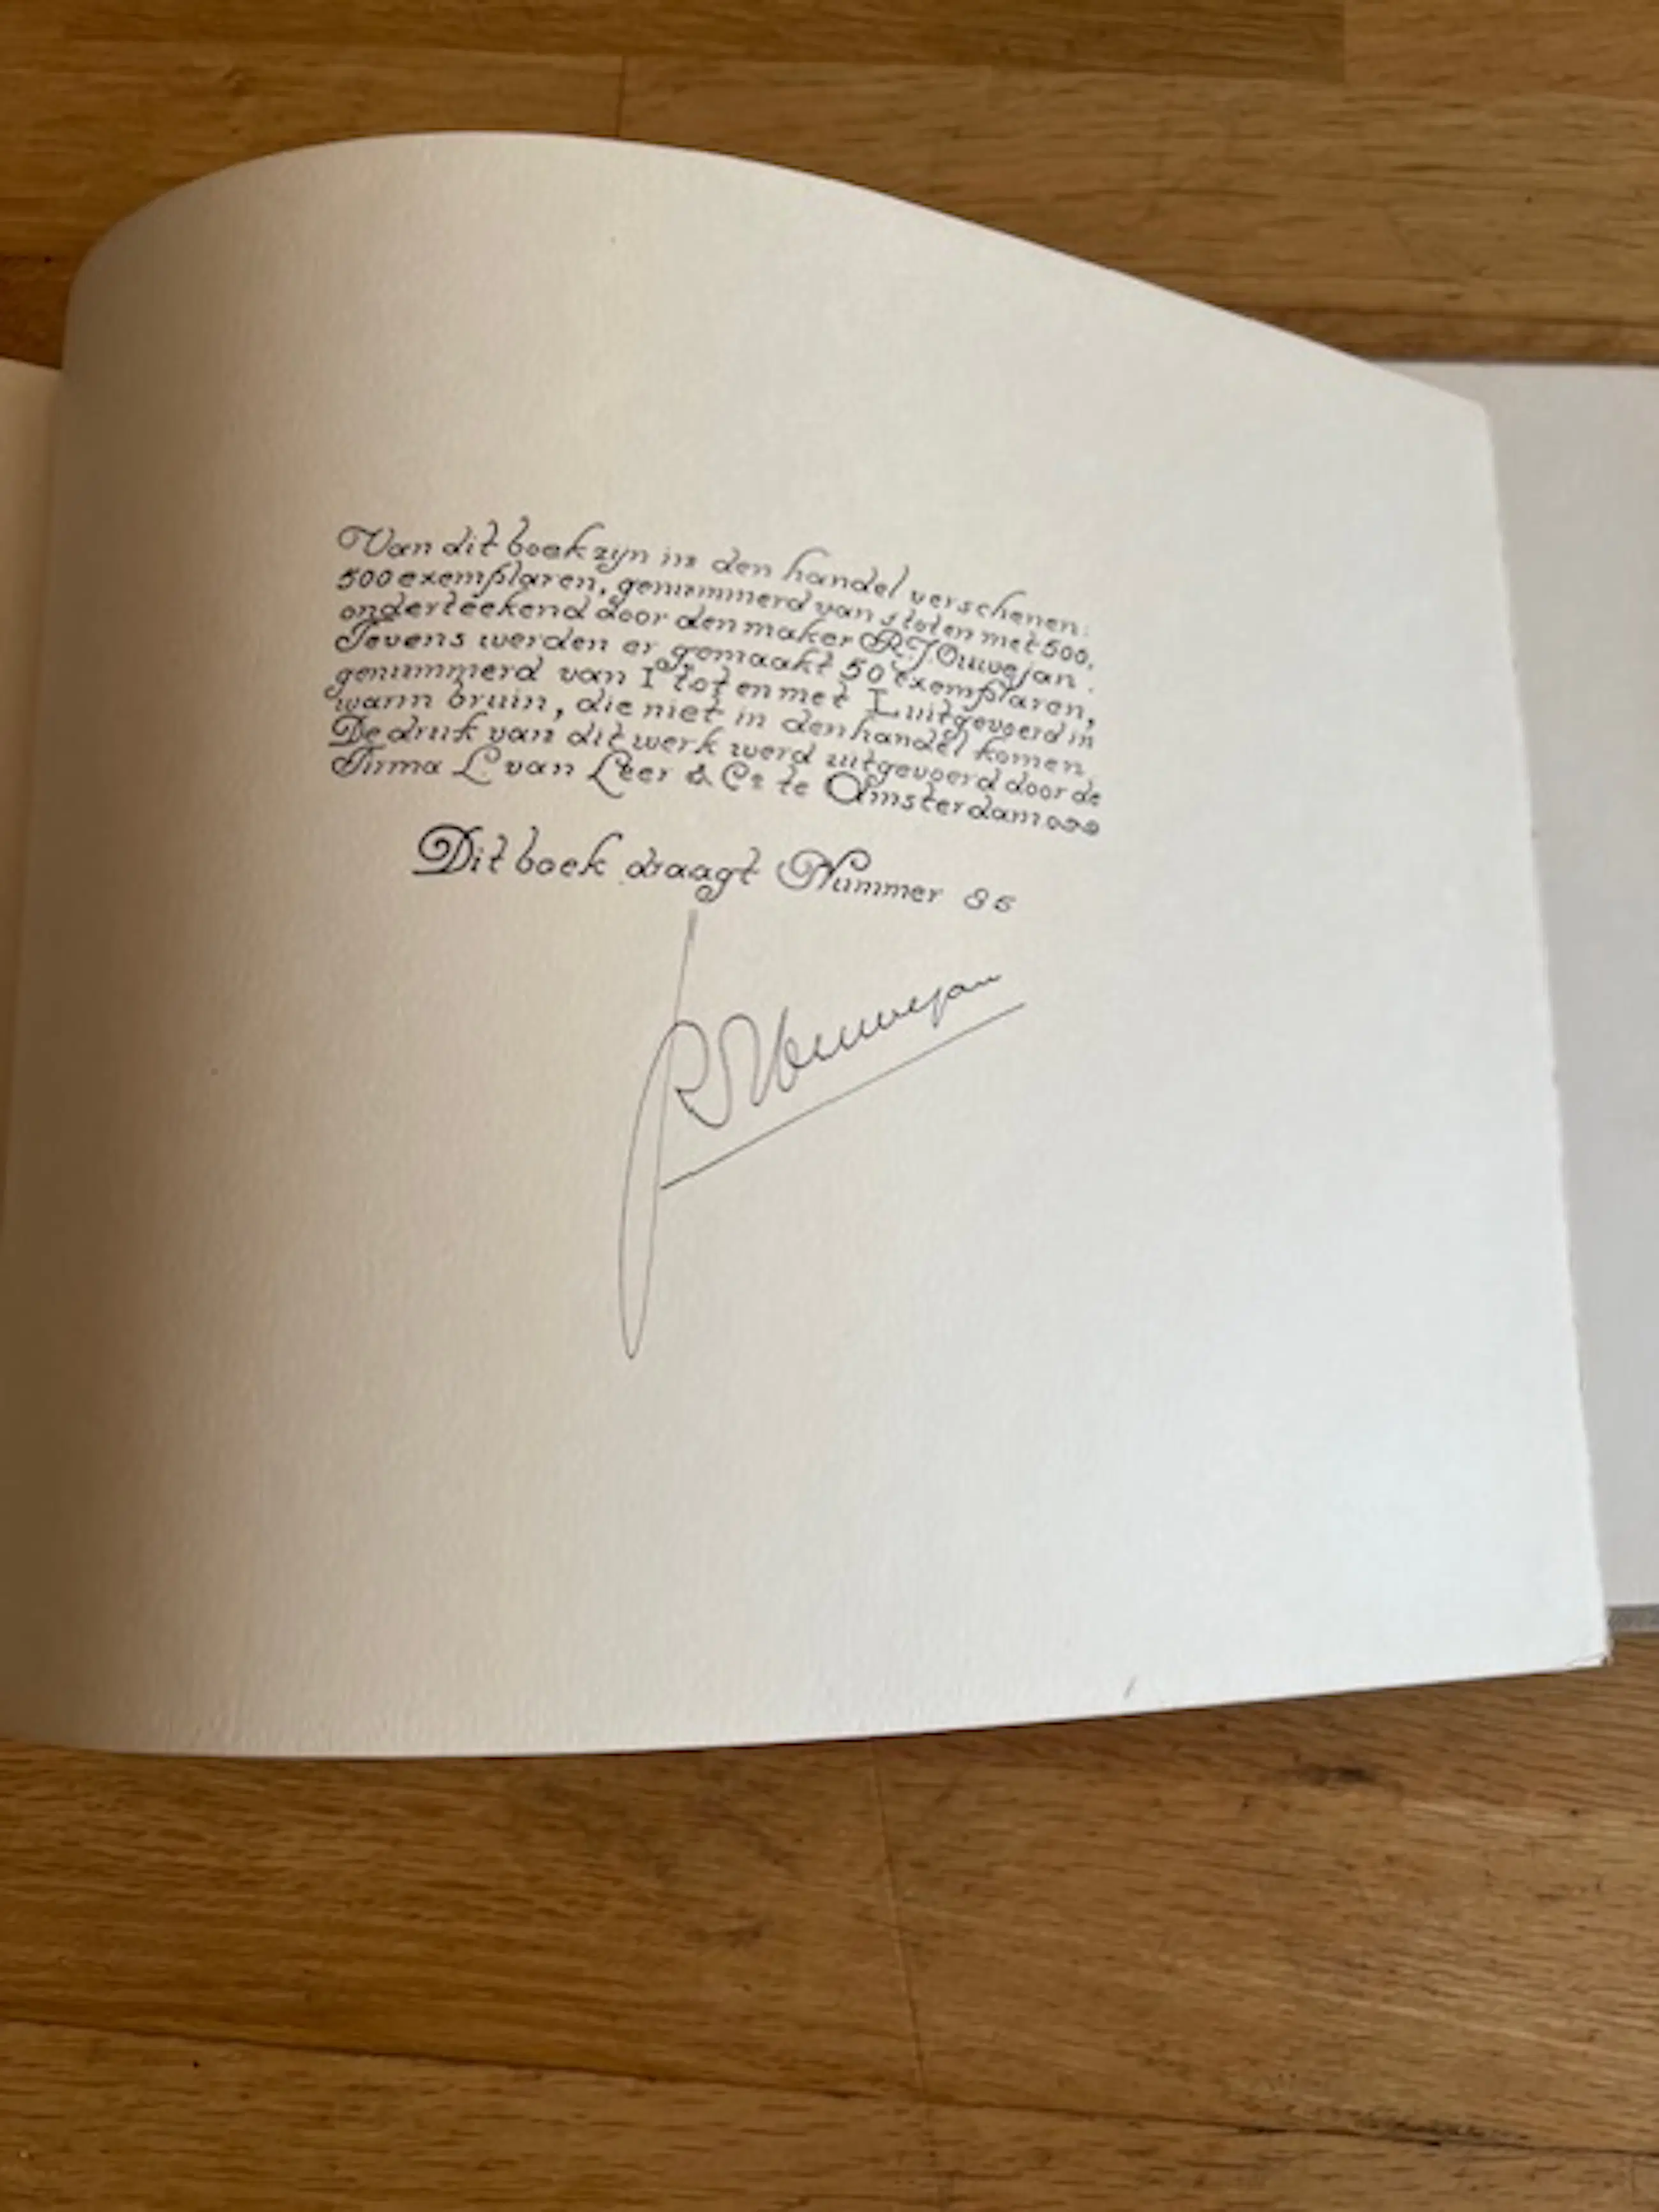 Van dit boek zijn in den handel verschenen:
500 exemplaren, genummerd van 1 tot en met 500,
onderteekend door den maker R.J. Ouwejan.
Tevens werden er gemaakt 50 exemplaren,
genummerd van I tot en met L uitgevoerd in
warm bruin, die niet in den handel komen.
De druk van dit werk werd uitgevoerd door de
Firma L. van Leer & Co te Amsterdam
Dit boek draagt Nummer 86
RJOuwejan